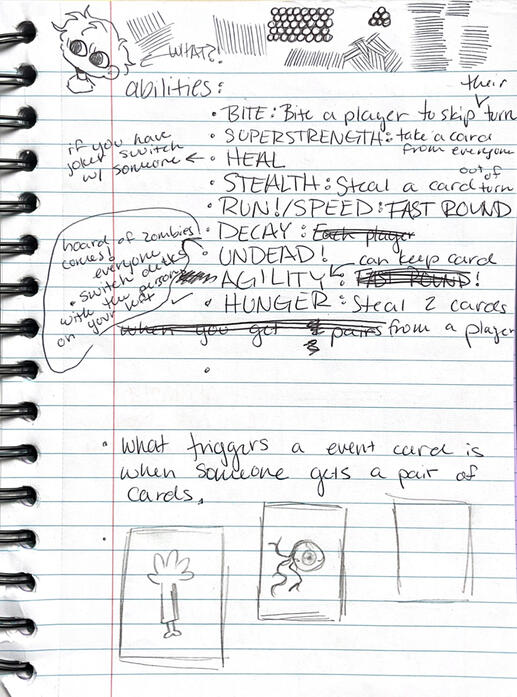 WHAT?!
abilities:
their
• BITE: Bite a player to skip turn
• SUPERSTRENGTH: take a card
from everyone
if you have
joker switch
w/ someone ←
• HEAL
out of
• STEALTH: Steal a card turn
• RUN!/SPEED: FAST ROUND
• DECAY: Each player
hoard of zombies
comes!
everyone
• switch decks
with the person
on your left
• UNDEAD! can keep card
• AGILITY: FAST ROUND!
• HUNGER: Steal 2 cards
when you get pairs from a player
3
•
• What triggers a event card is
when someone gets a pair of
cards.
•